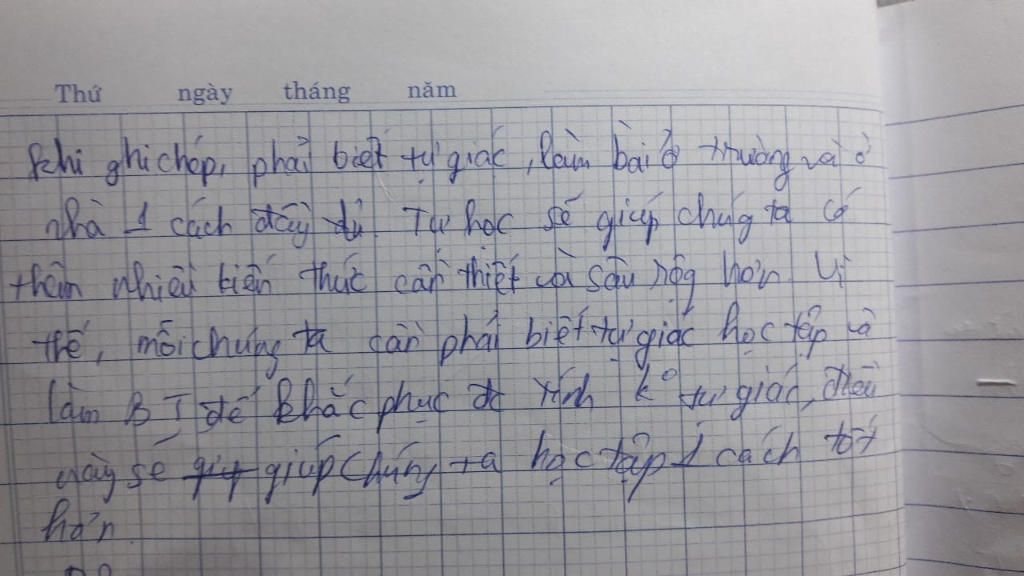 Thứ ngày tháng năm
khi ghi chép, phải biết tự giác, làm bài ở trường và ở
nhà 1 cách đầy đủ. Tự học sẽ giúp chúg ta có
thêm nhiều kiến thức cần thiết và sâu rộg hơn. Vì
thế, mỗi chúng ta cần phải biết tự giác học tập và
làm BT để khắc phục đc tính ko tự giác, điều
này sẽ giúp chúng ta học tập 1 cách tốt
hơn.